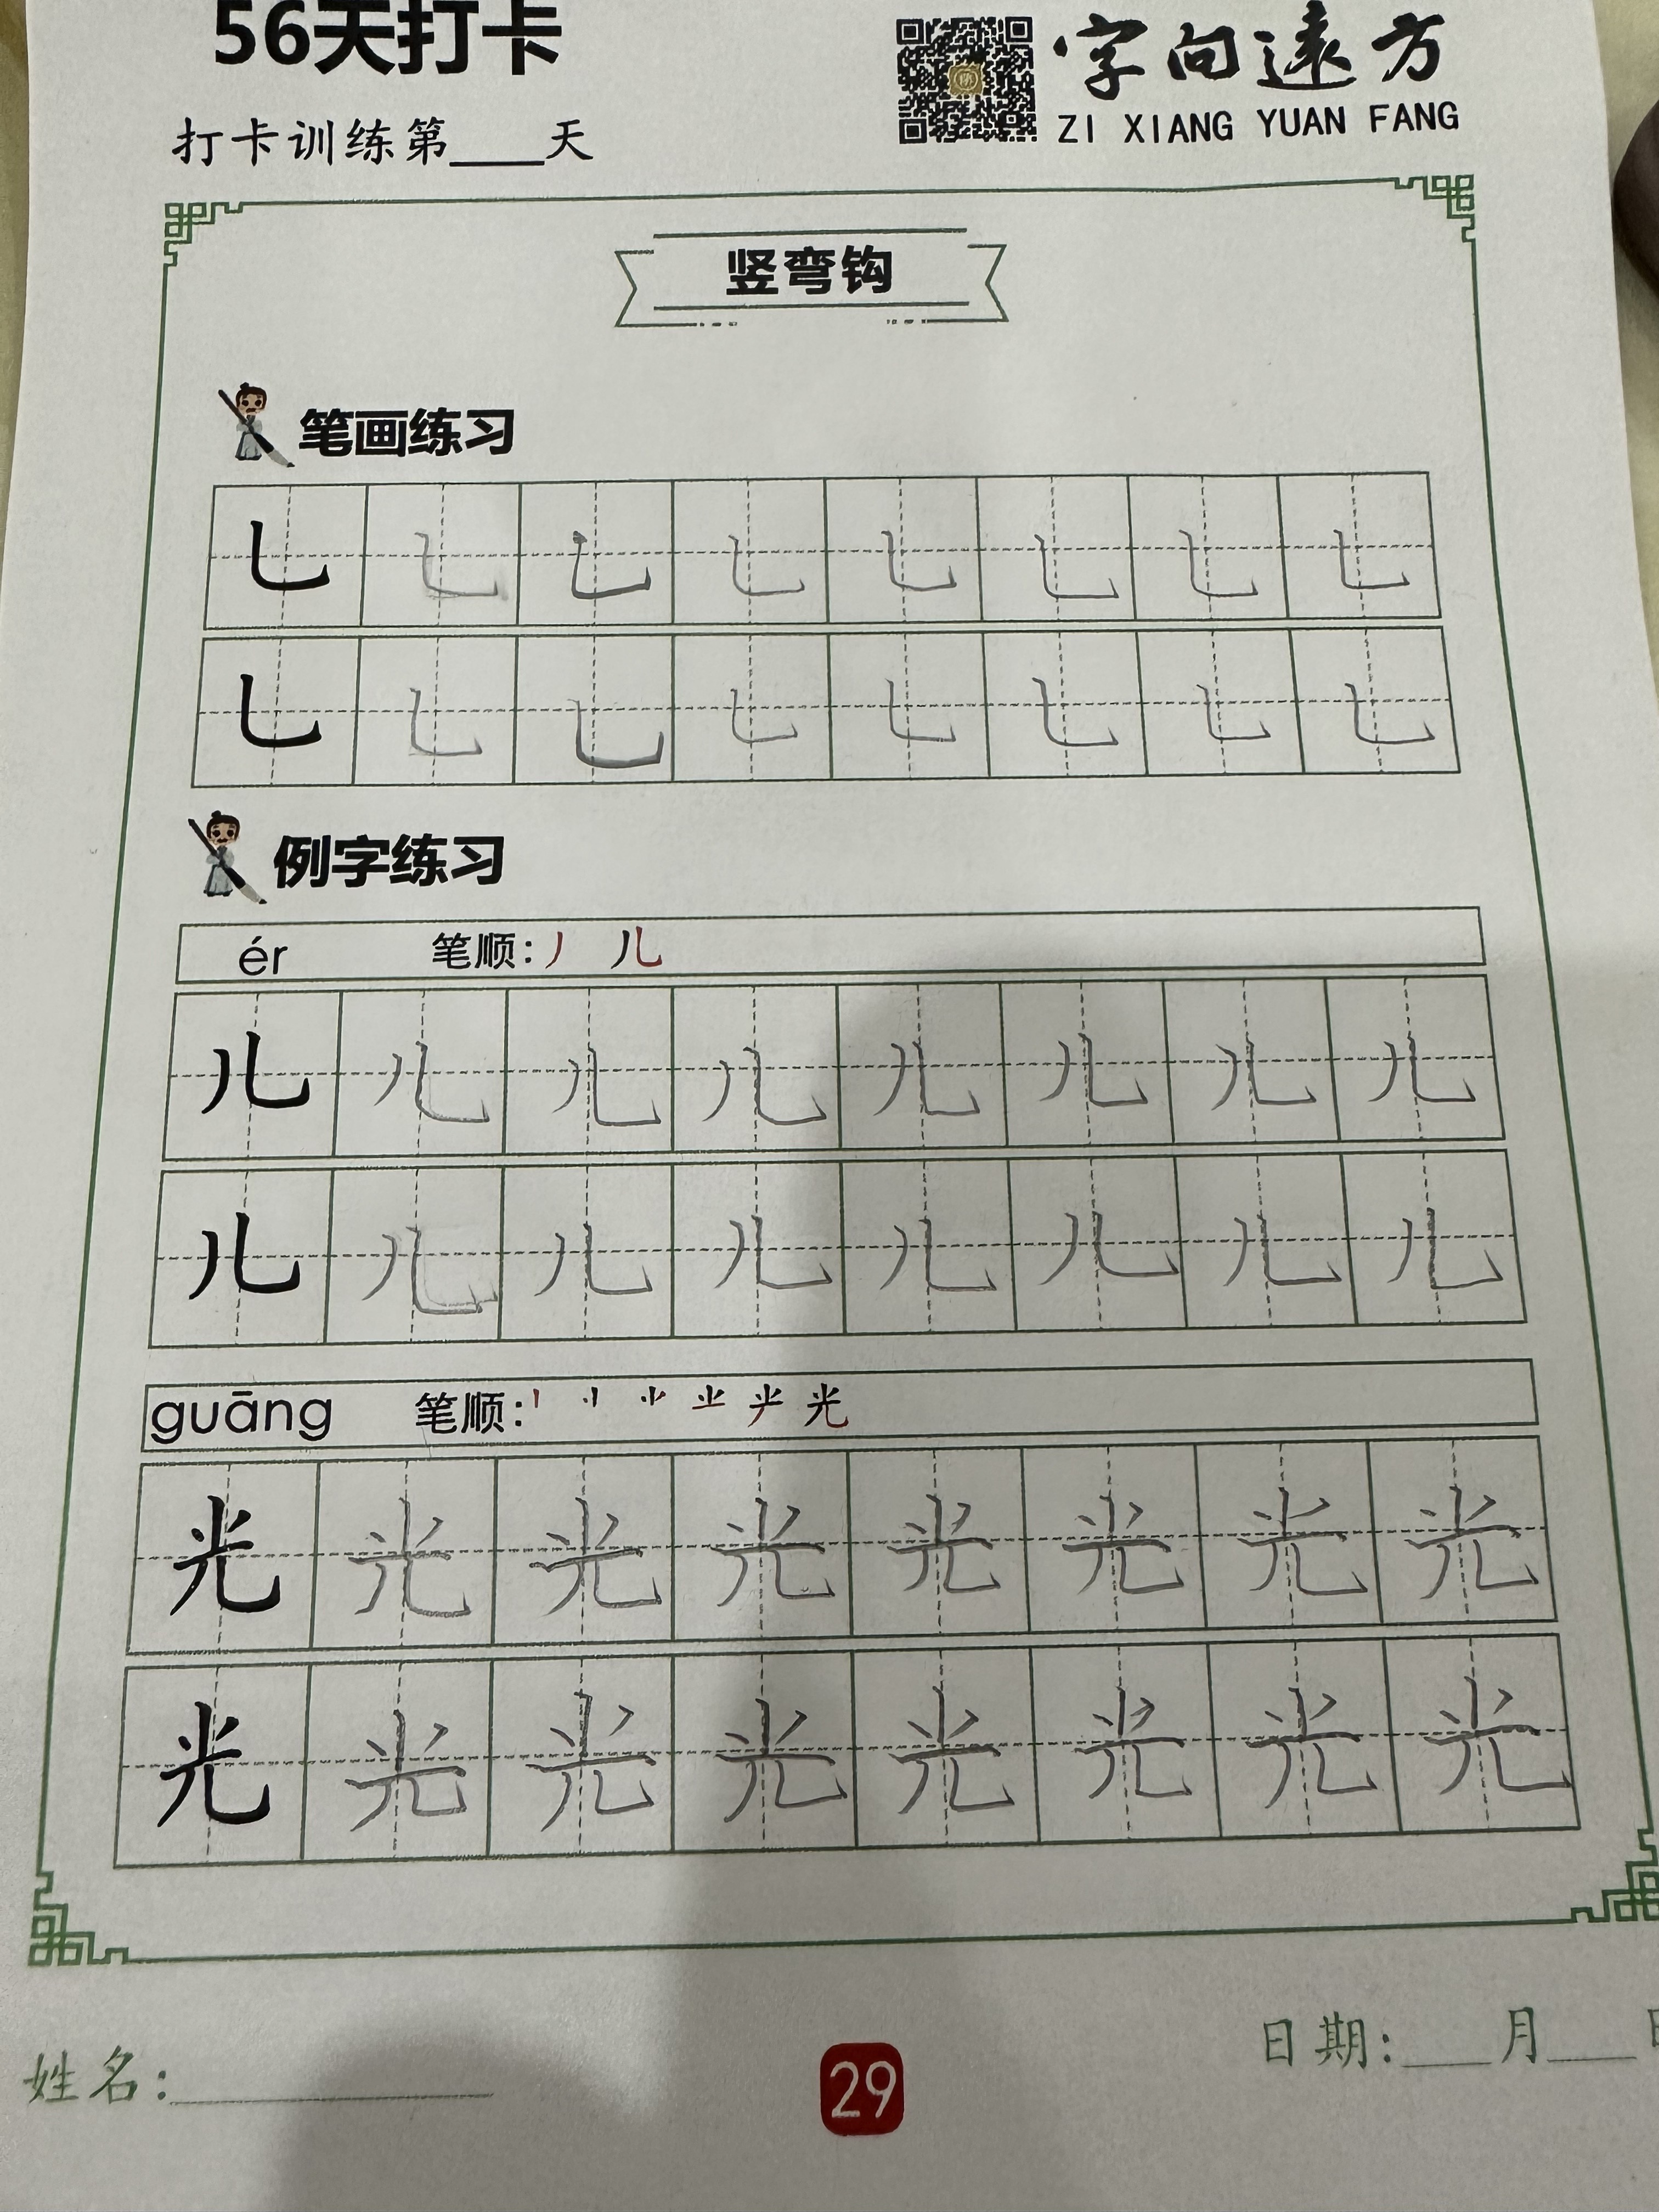 56天打卡
字向遠方
ZI XIANG YUAN FANG
打卡训练第____天
竖弯钩
笔画练习
乚 乚 乚 乚 乚 乚 乚 乚
乚 乚 乚 乚 乚 乚 乚 乚
例字练习
ér 笔顺: 丿 儿
儿 儿 儿 儿 儿 儿 儿 儿
儿 儿 儿 儿 儿 儿 儿 儿
guāng 笔顺: 光
光 光 光 光 光 光 光 光
光 光 光 光 光 光 光 光
姓名:
29
日期:___月___